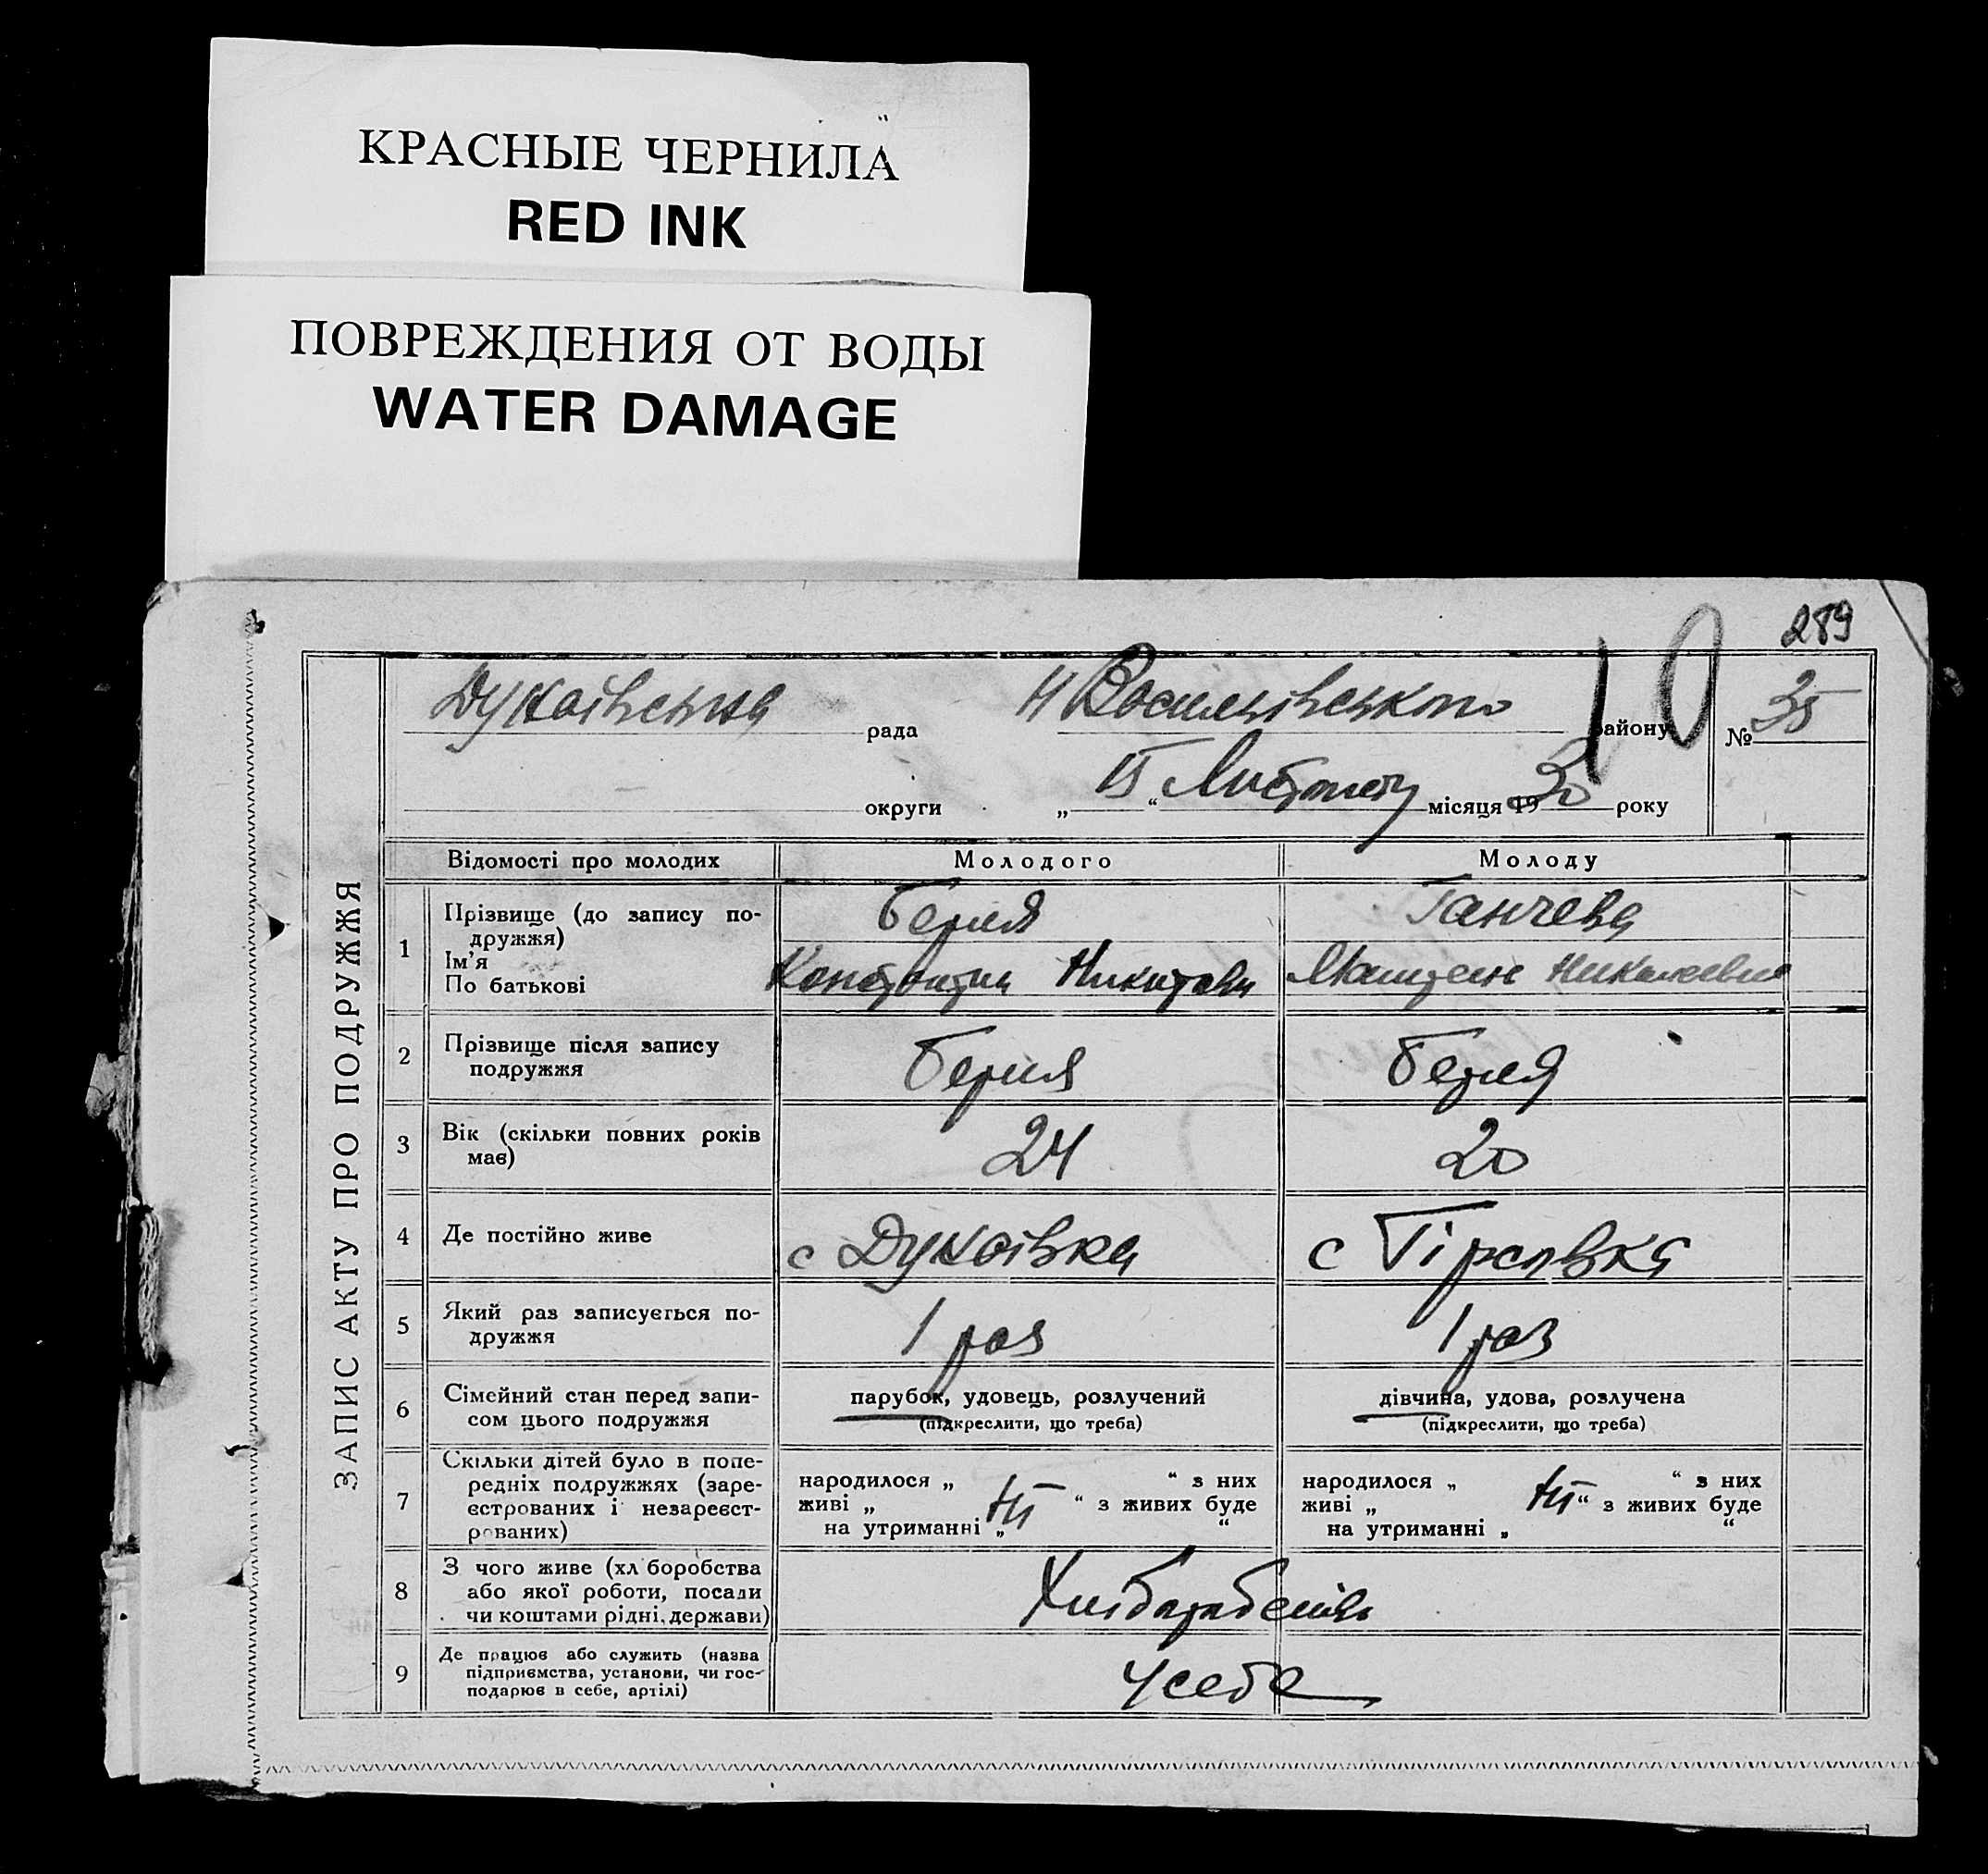 КРАСНЫЕ ЧЕРНИЛА
RED INK
ПОВРЕЖДЕНИЯ ОТ ВОДЫ
WATER DAMAGE
289
10
рада Н Васильівського району № 35
округи „ “ Листопаду місяця 1930 року
ЗАПИС АКТУ ПРО ПОДРУЖЖЯ
Відомості про молодих Молодого Молоду
1 Прізвище (до запису по-
дружжя)
Ім'я
По батькові
Берия Ганчева
Константин Никитови Николаевна
2 Прізвище після запису
подружжя
Берия Берия
3 Вік (скільки повних років
має)
24 20
4 Де постійно живе с Дунаівка с Гірсовка
5 Який раз записується по-
дружжя
1 раз 1 раз
6 Сімейний стан перед запи-
сом цього подружжя
парубок, удовець, розлучений
(підкреслити, що треба)
дівчина, удова, розлучена
(підкреслити, що треба)
7 Скільки дітей було в попе-
редніх подружжях (заре-
єстрованих і незареєст-
рованих)
народилося „ “ з них
живі „ ні “ з живих буде
на утриманні „ “
народилося „ “ з них
живі „ ні “ з живих буде
на утриманні „ “
8 З чого живе (хл боробства
або якої роботи, посади
чи коштами рідні, держави)
9 Де працює або служить (назва
підприємства, установи, чи гос-
подарює в себе, артілі)
У себе